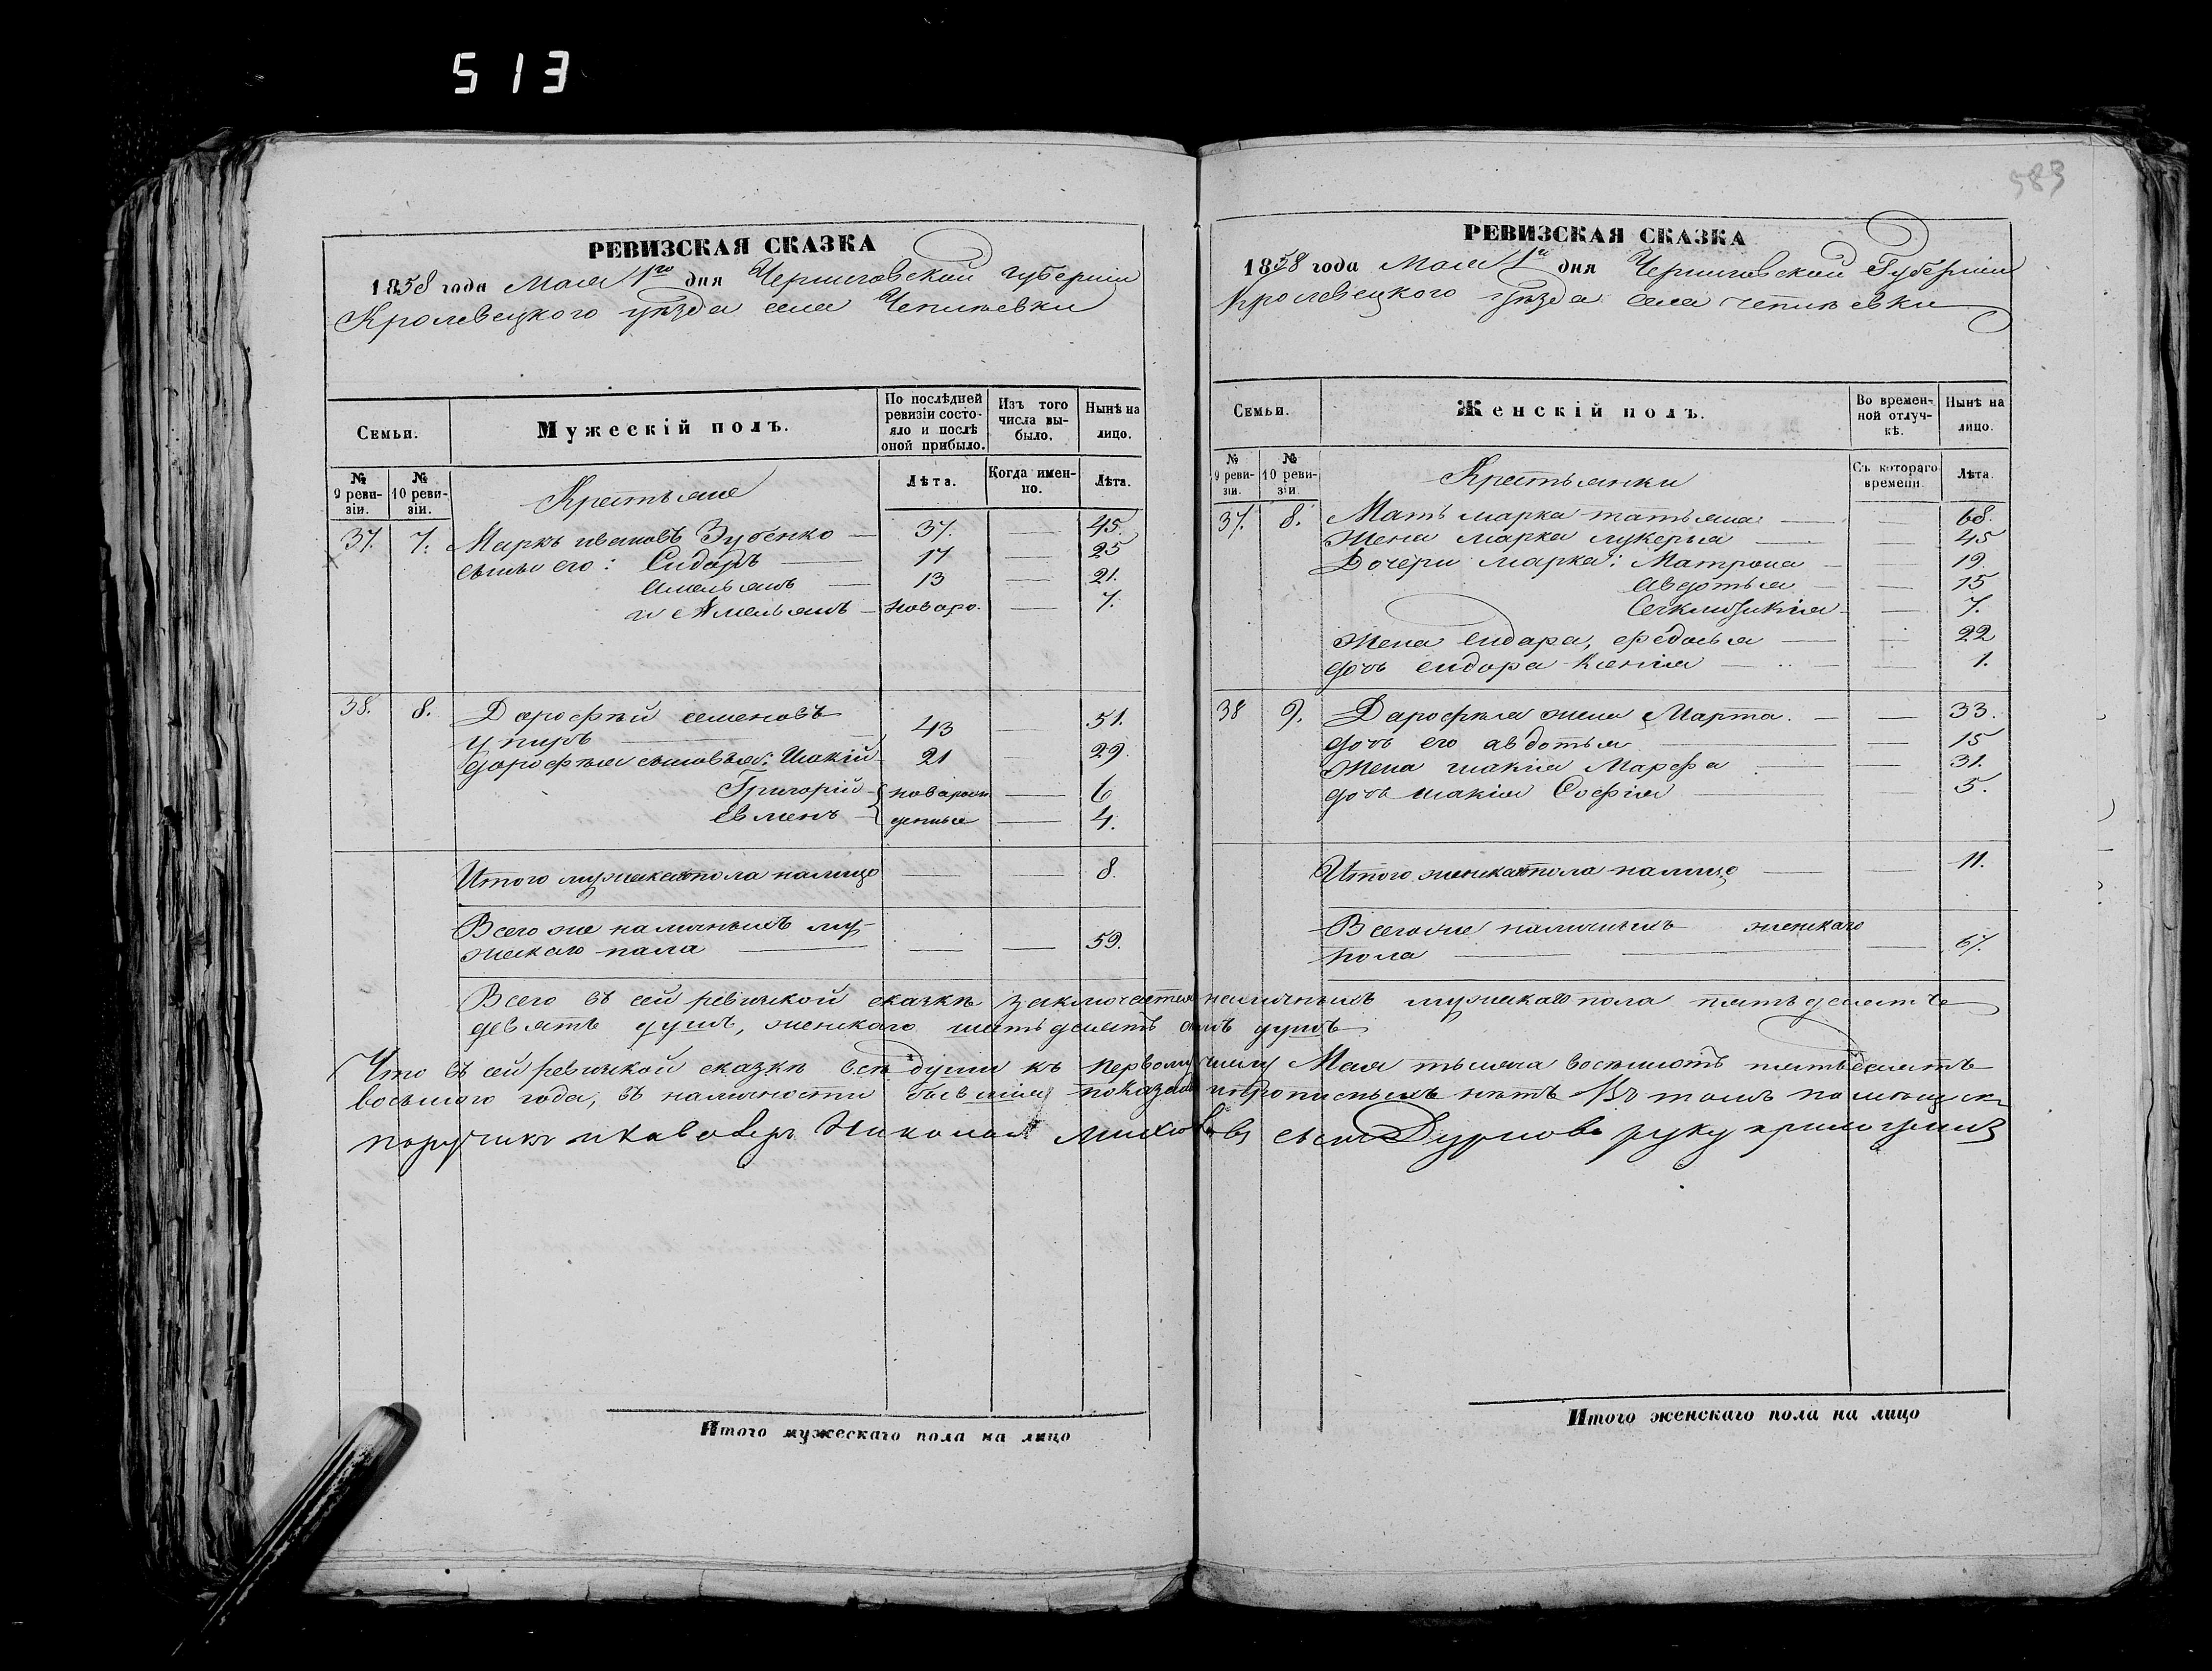 513
583
РЕВИЗСКАЯ СКАЗКА
1858 года Мая 1го дня Черниговской губернии
Кролевецкого уѣзда села Чепліевки
Семьи.
Мужескій полъ.
По послѣдней ревизіи состояло и послѣ оной прибыло.
Изъ того числа выбыло.
Нынѣ на лицо.
№ 9 ревизіи.
№ 10 ревизіи.
Крестьяне
Лѣта.
Когда именно.
Лѣта.
37. 7. Маркъ ивановъ Зубенко — 37. — 45.
сыны его: Сидоръ — 17 — 25
Амельянъ — 13 — 21.
и Амельянъ — новоро. — 7.
38. 8. Дарофѣй семеновъ
43 — 51.
дорофѣя сыновья: Иакій 21 — 29.
Григорій — новорож — 6
Евменъ — денные — 4.
Итого мужскаго пола налицо — — 8.
Всего же наличныхъ му-
жскаго пола — — 59.
РЕВИЗСКАЯ СКАЗКА
1858 года Мая 1го дня Черниговской Губерніи
Кролевецкого уѣзда села Чепліевки
Семьи.
Женскій полъ.
Во временной отлучкѣ.
Нынѣ на лицо.
№ 9 ревизіи.
№ 10 ревизіи.
Крестьянки
Съ котораго времени
Лѣта.
37. 8. Мать марка татьяна — — 68.
Жена марка лукерья — — 45
Дочери марка: Матрона — — 19.
Авдотья — — 15
— 7.
Жена сидора, федосья — — 22
дочь сидора Ксенія — — 1.
38 9. Дарофѣя жена Марта. — — 33.
дочь его авдотья — — 15
Жена иакія Марфа — — 31.
дочь иакія Софія — — 5.
Итого женскаго пола налицо — — 11.
Всего же наличныхъ женскаго
пола — — 67.
Всего въ сей ревизской сказкѣ заключается наличныхъ мужскаго пола пятьдесятъ
девять душъ, женскаго шестьдесятъ семь душъ
Что въ сей ревизской сказкѣ всѣ души къ первому числу Мая тысяча восемьсотъ пятьдесятъ
восьмого года, въ наличности бывшія показаны и прописныхъ нѣтъ Въ томъ помѣщик
поручикъ и кавалеръ Николай сынъ Дурново руку приложилъ
Итого мужескаго пола на лицо
Итого женскаго пола на лицо